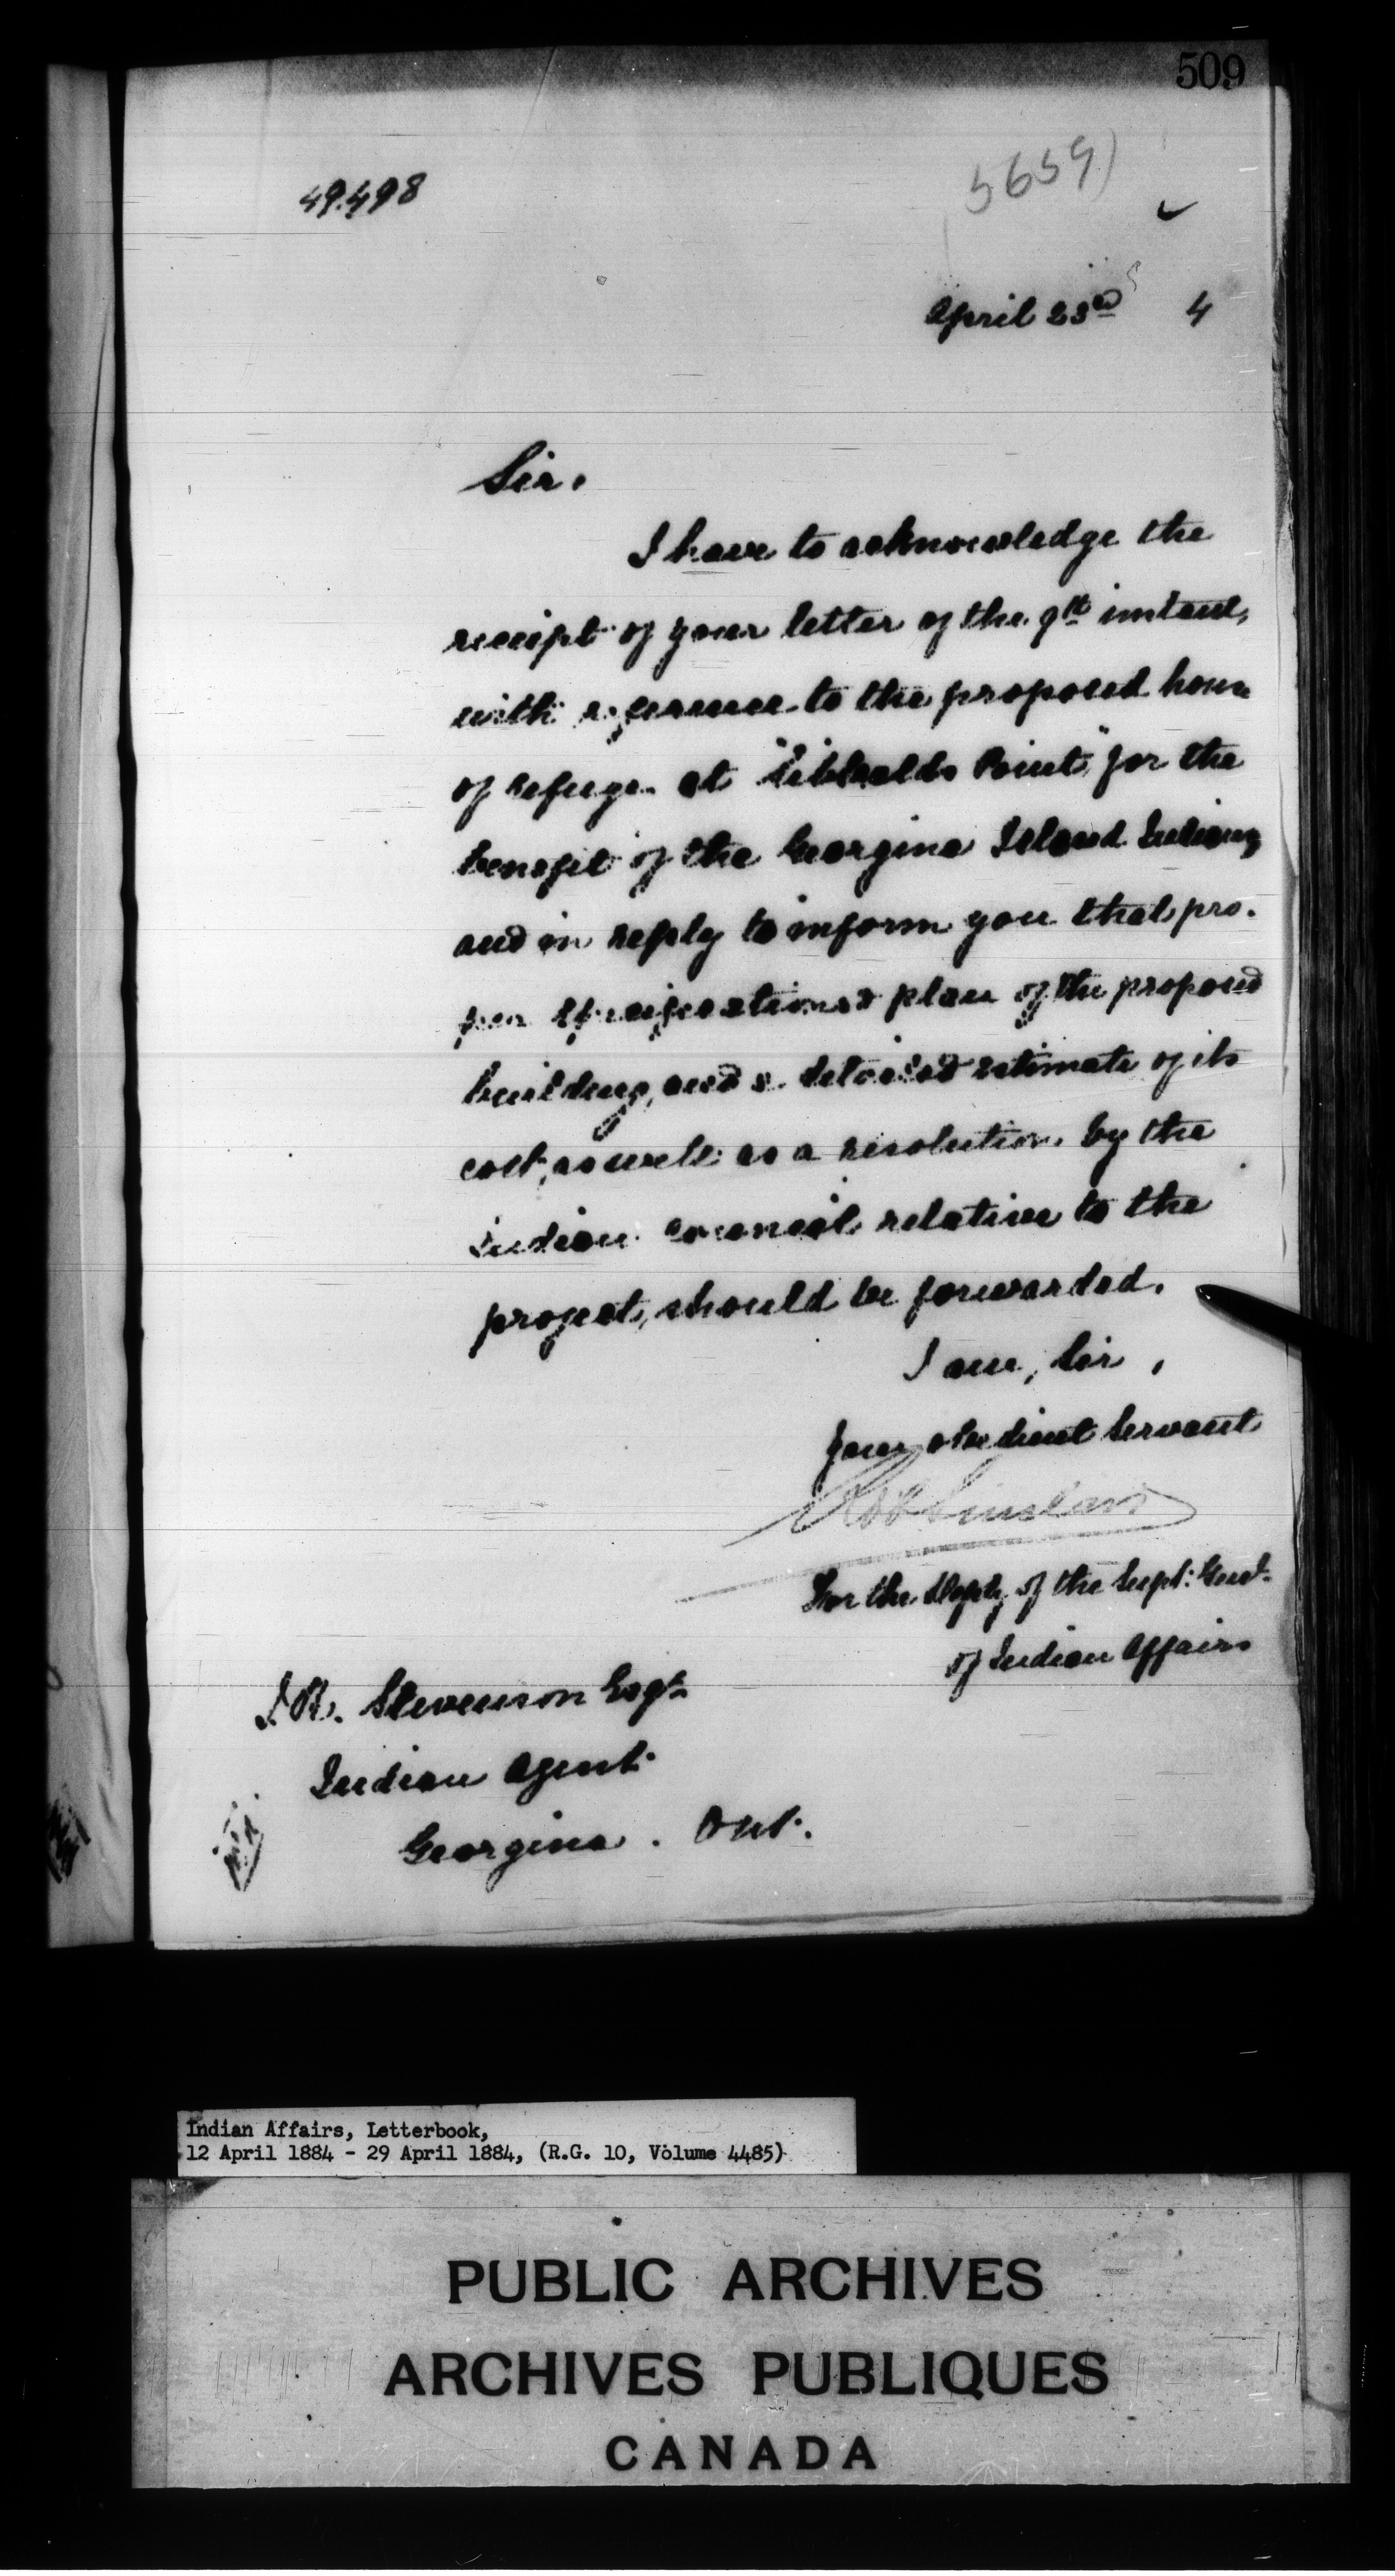 509
49.498
5659)
April 23rd 4
Sir,
I have to acknowledge the
receipt of your letter of the 9th instant,
with reference to the proposed house
of refuge at "Sibbalds Point" for the
benefit of the Georgina Island Indians,
and in reply to inform you that pro-
per specifications & plan of the proposed
building, and a detailed estimate of its
cost, as well as a resolution by the
Indian Council relative to the
project, should be forwarded.
I am, Sir,
Your obedient Servant
Sinclair
For the Depty of the Supt. Genl.
of Indian Affairs
J.R. Stevenson Esqr
Indian Agent
Georgina. Ont.
Indian Affairs, Letterbook,
12 April 1884 - 29 April 1884, (R.G. 10, Volume 4485)
PUBLIC ARCHIVES
ARCHIVES PUBLIQUES
CANADA